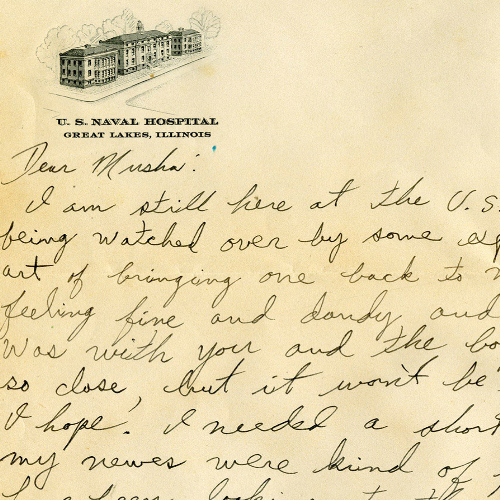 U. S. NAVAL HOSPITAL
GREAT LAKES, ILLINOIS
Dear Musha:
I am still here at the U.S.
being watched over by some exp
art of bringing one back to
feeling fine and dandy and
was with you and the bo
so close, but it won't be
I hope. I needed a short
my newes were kind of